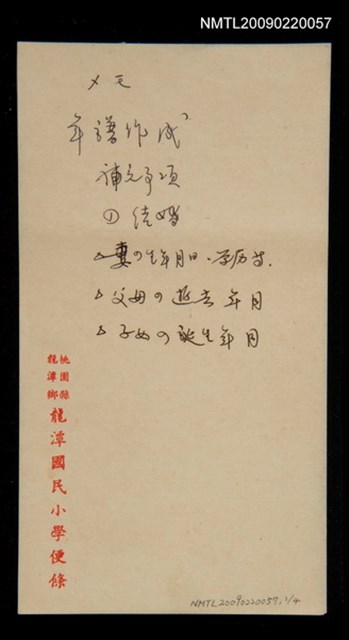 NMTL20090220057
メモ
年譜作成
補充事項
① 結婚
△妻の生年月日・学历等.
△父母の逝去年月
△子女の誕生年月
桃園縣
龍潭鄉
龍潭國民小學便條
NMTL20090220057, 1/4